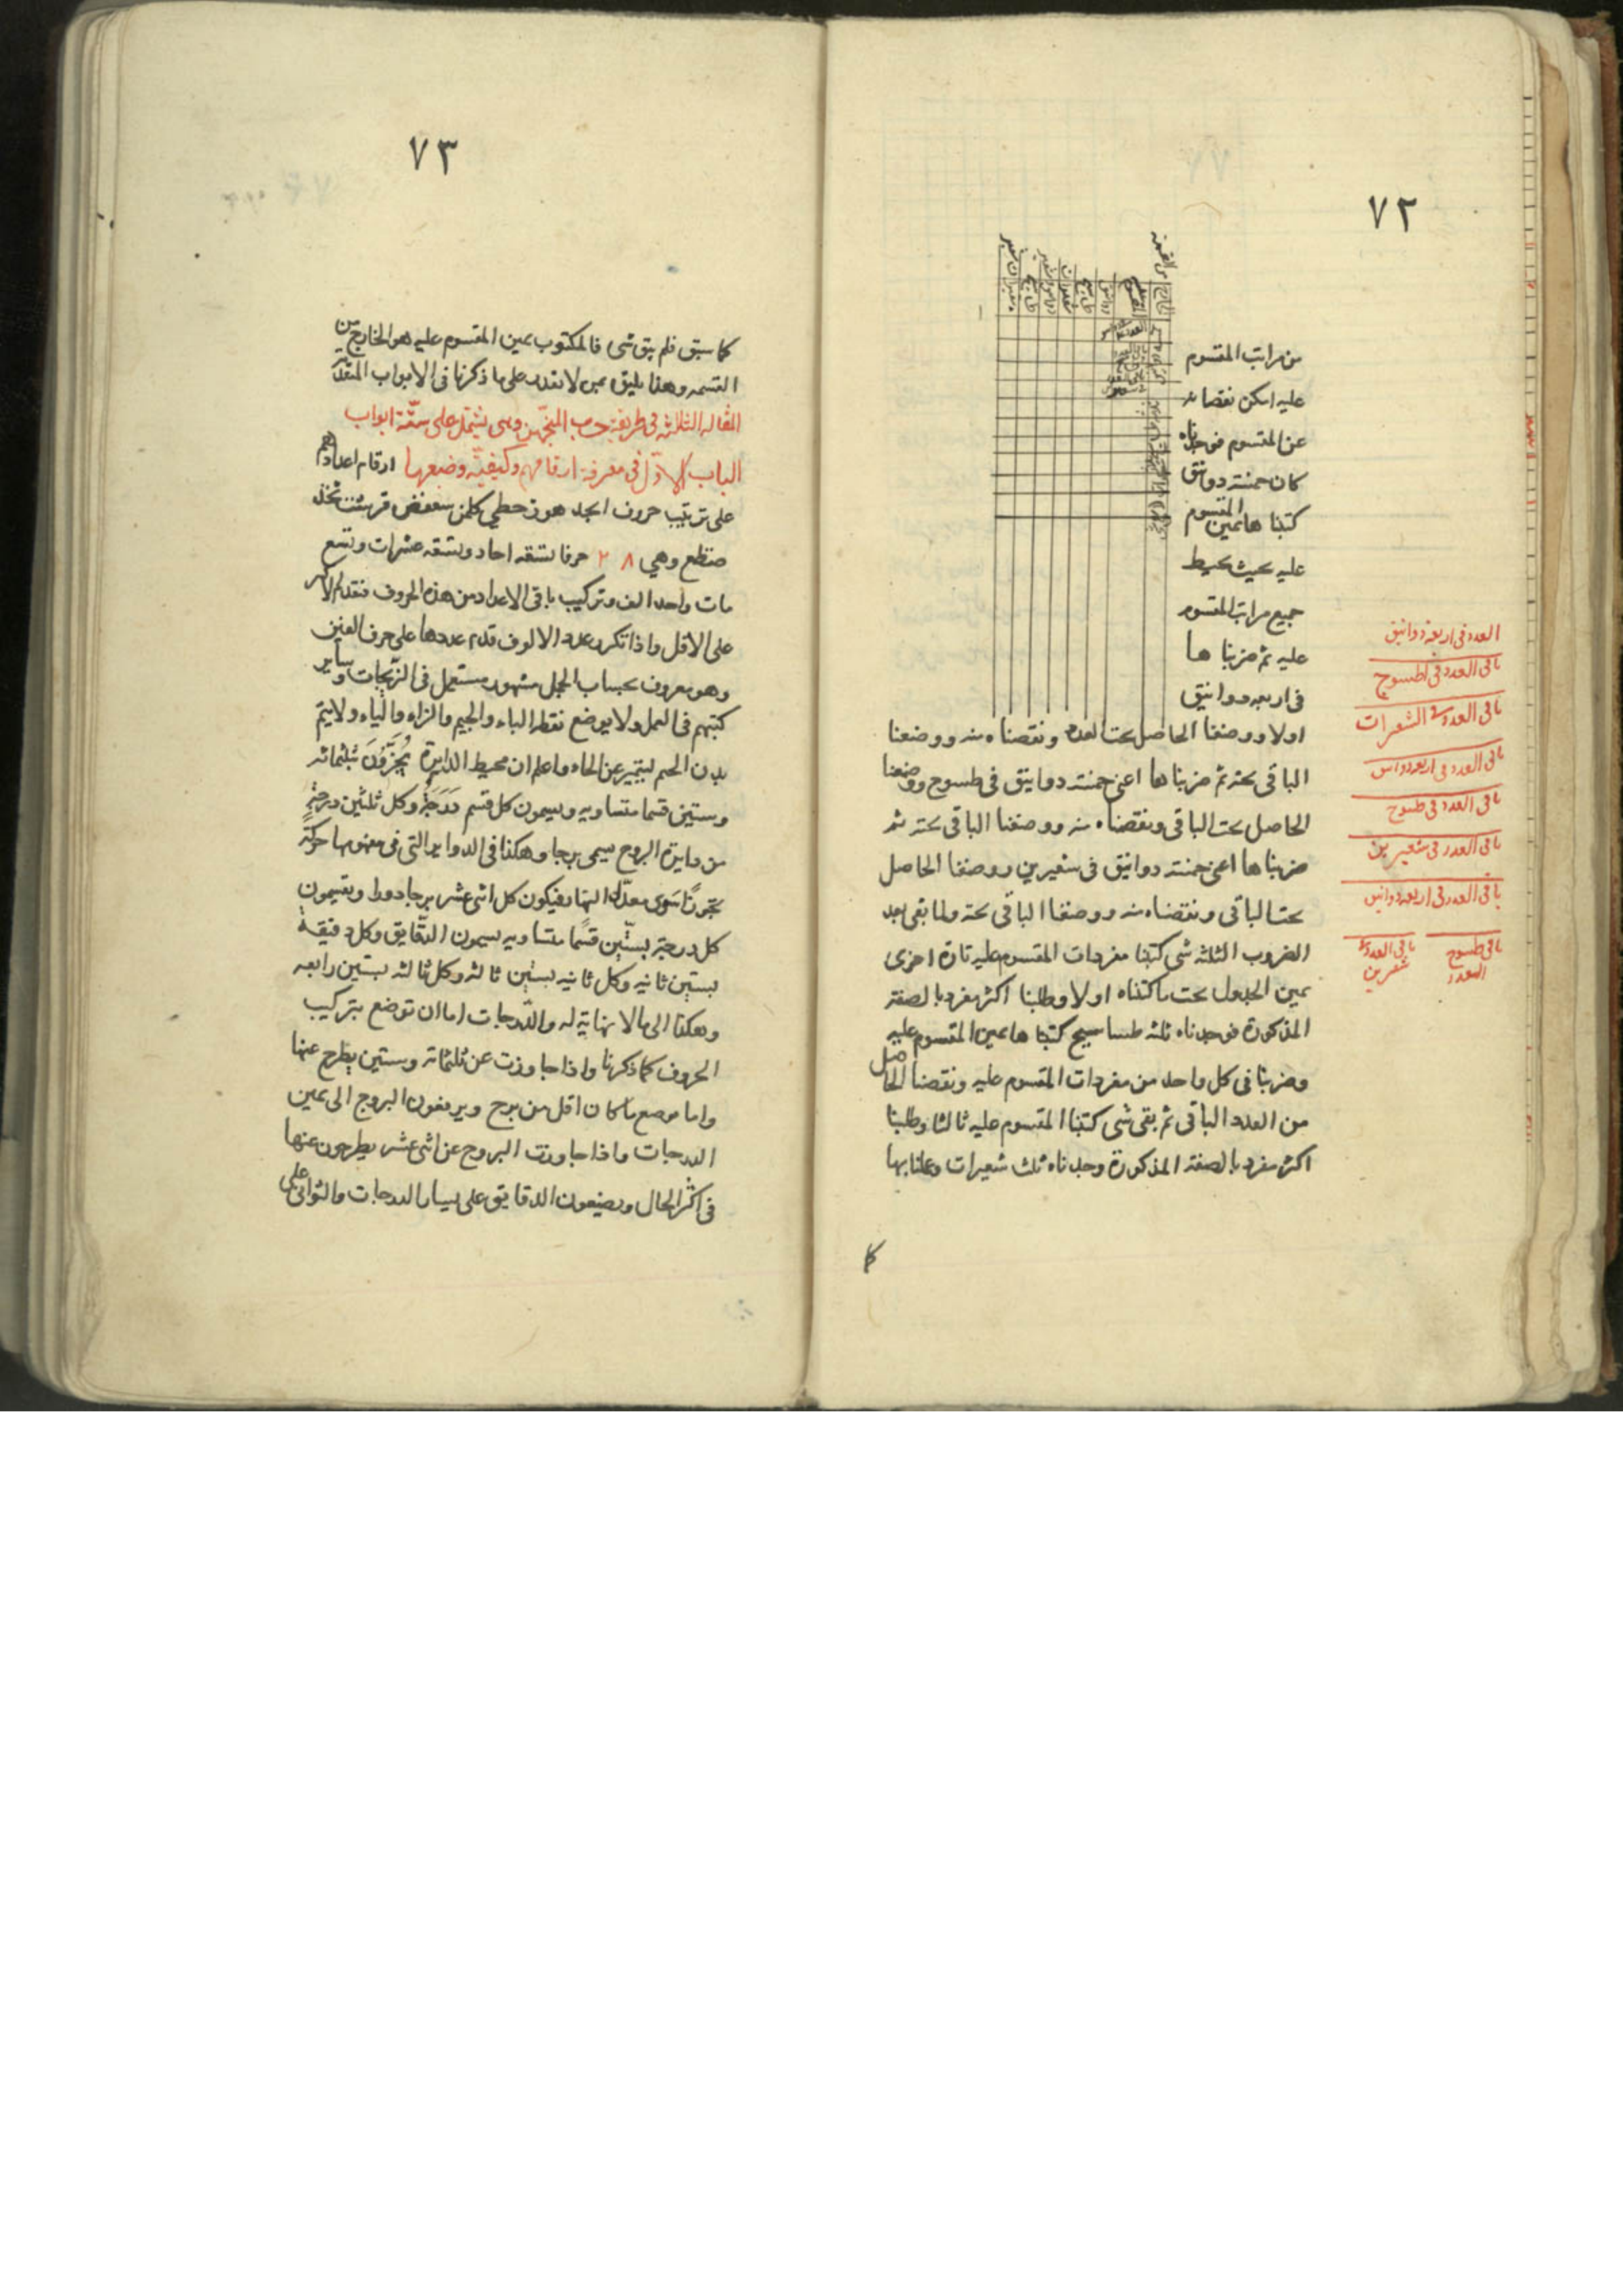 ٧٢
من مراتب المقسوم
عليه امكن نقصانه
عن المقسوم فوجدناه
كان خمسة دوانيق
كتبنا ها يمين المقسوم
عليه بحيث يحيط
جميع مراتب المقسوم
عليه ثم ضربنا ها
فى اربعه دوانيق
اولا ووضعنا الحاصل تحت العدد ونقصناه منه ووضعنا
الباقى تحته ثم ضربنا ها اعنى خمسة دوانيق فى طسوج ووضعنا
الحاصل تحت الباقى ونقصناه منه ووضعنا الباقى تحته ثم
ضربنا ها اعنى خمسة دوانيق فى شعيرين ووضعنا الحاصل
تحت الباقى ونقصناه منه ووضعنا الباقى تحته ولما بقى بعد
الضروب الثلثه شى كتبنا مفردات المقسوم عليه تارة اخرى
يمين الجدول تحت ما كتبناه اولا وطلبنا اكثر مفرد بالصفة
المذكورة فوجدناه ثلثه طساسيج كتبنا ها يمين المقسوم عليه
وضربنا فى كل واحد من مفردات المقسوم عليه ونقصنا الحاصل
من العدد الباقى ثم بقى شى كتبنا المقسوم عليه ثالثا وطلبنا
اكثر مفرد بالصفة المذكورة وجدناه ثلث شعيرات وعملنا بها
كا
العدد فى اربعة دوانيق
باقى العدد فى طسوج
باقى العدد الشعرات
باقى العدد فى اربعه دوانس
باقى العدد فى طسوج
باقى العدد فى شعيرين
باقى العدد فى اربعه دوانس
باقى طسوج العدد
باقى العدد شعرين
٧٣
كما سبق فلم يبق شى فالمكتوب يمين المقسوم عليه هو الخارج من
القسمه وهذا يليق بمن لا يقدر على ما ذكرنا فى الابواب المتقدمة
المقاله الثلاثه فى طريقة حساب المنجمين وهى يشتمل على ستّة ابواب
الباب الاوّل فى معرفة ارقامهم وكيفيّة وضعها ارقام اعدادهم
على ترتيب حروف ابجد هوز حطي كلمن سعفص قرشت ثخذ
ضظغ وهي ٢٨ حرفا تسعه احاد وتسعه عشرات وتسع
مات واحد الف وتركيب باقى الاعداد من هذه الحروف فتقدم الاكثر
على الاقل واذا تكرر عدد الالوف قدم عددها على حرف الغين
وهو معروف بحساب الجمل مشهور مستعمل فى الزيجات وساير
كتبهم فى العمل ولا يوضع نقط الباء والجيم والزاء والياء ولا يتم
بدن الجيم ليتميز عن الحاء واعلم ان محيط الدايرة يُجَزِّؤنَ بثلثمائه
وستين قسما متساويه ويسمون كل قسم دَرَجَةً وكل ثلثين درجةٍ
من دايرة البروج يسمى برجا وهكذا فى الدواير التى فى مفهومها حركة
سوى معدّل النهار فيكون كل اثنى عشر برجا دورا ويقسمون
كل درجة بستّين قسمًا متساويه يسمون الدّقايق وكل دقيقةٍ
بستين ثانيه وكل ثانيه بستين ثالثه وكل ثالثه بستين رابعه
وهكذا الى ما لا نهاية له والدّرجات اما ان توضع بتركيب
الحروف كما ذكرنا واذا جاوزت عن ثلثمائة وستين يطرح عنها
واما موضع ما كان اقل من برج ويرفعون البروج الى يمين
الدرجات واذا جاوزت البروج عن اثنى عشر يطرحون عنها
فى اكثر الحال ويضعون الدقايق على يسار الدرجات والثوانى على